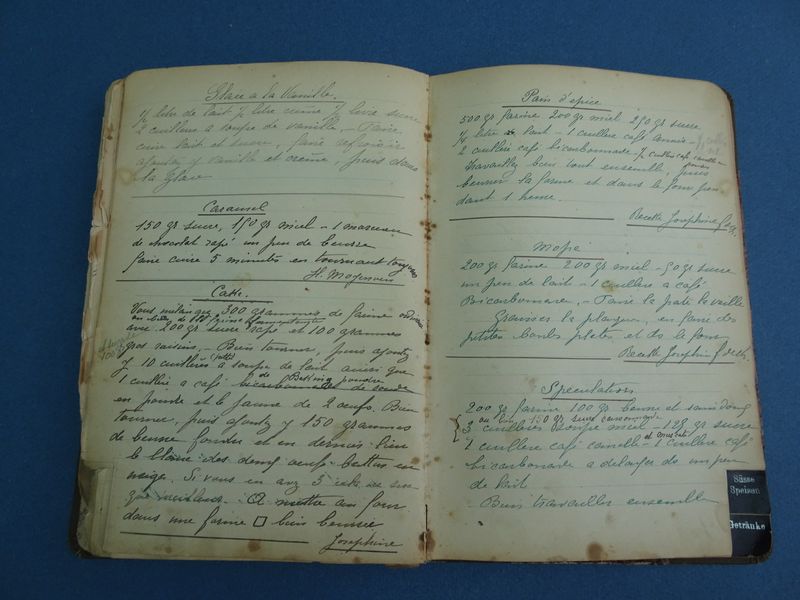 Glace à la Vanille.
½ litre de lait ½ litre crème ½ livre sucre
2 cuillère à soupe de vanille, – Faire
cuire lait et sucre, faire refroidir
ajoutez y vanille et crème, puis dans
la glace
Caramel
150 gr sucre, 150 gr miel – 1 morceau
de chocolat rapé un peu de beurre
faire cuire 5 minutes en tournant toujours
H.
Cake.
Vous mélangez 300 grammes de farine
avec 200 gr sucre rapé et 100 grammes
gros raisins. – Bien tourner, puis ajoutez
y 10 cuillères à soupe de lait ainsi que
de Baking poudre
1 cuillère à café bicarbonate de soude
en poudre et le jaune de 2 œufs. Bien
tourner, puis ajoutez y 150 grammes
de beurre fondu et en dernier lieu
le blanc des deux œufs battus en
neige. Si vous en avez 3 cela
meilleur. A mettre au four
dans une forme □ bien beurrée
Josephine
Pain d'epice
500 gr farine 200 gr miel 250 gr sucre
½ litre de lait – 1 cuillère café anis –
2 cuillère café bicarbonate ½ cuillère café canelle
travaillez bien tout ensemble, puis
beurrer la forme et dans le four pen
dant 1 heure.
Recette Josephine
Mopse
200 gr farine 200 gr miel – 50 gr sucre
un peu de lait – 1 cuillère à café
Bicarbonate, – Faire la pate la veille
Graissez la plaque, en faire des
petites boules plates et de le four
Recette Josephine
Speculations
200 gr farine 100 gr beurre et saindoux
ou bien 150 gr sucre
3 cuillères soupe miel – 125 gr sucre
1 cuillère café canelle – 1 cuillère café
bicarbonate a delayer ds un peu
de lait
Bien travailler ensemble
Süsse
Speisen
Getränke